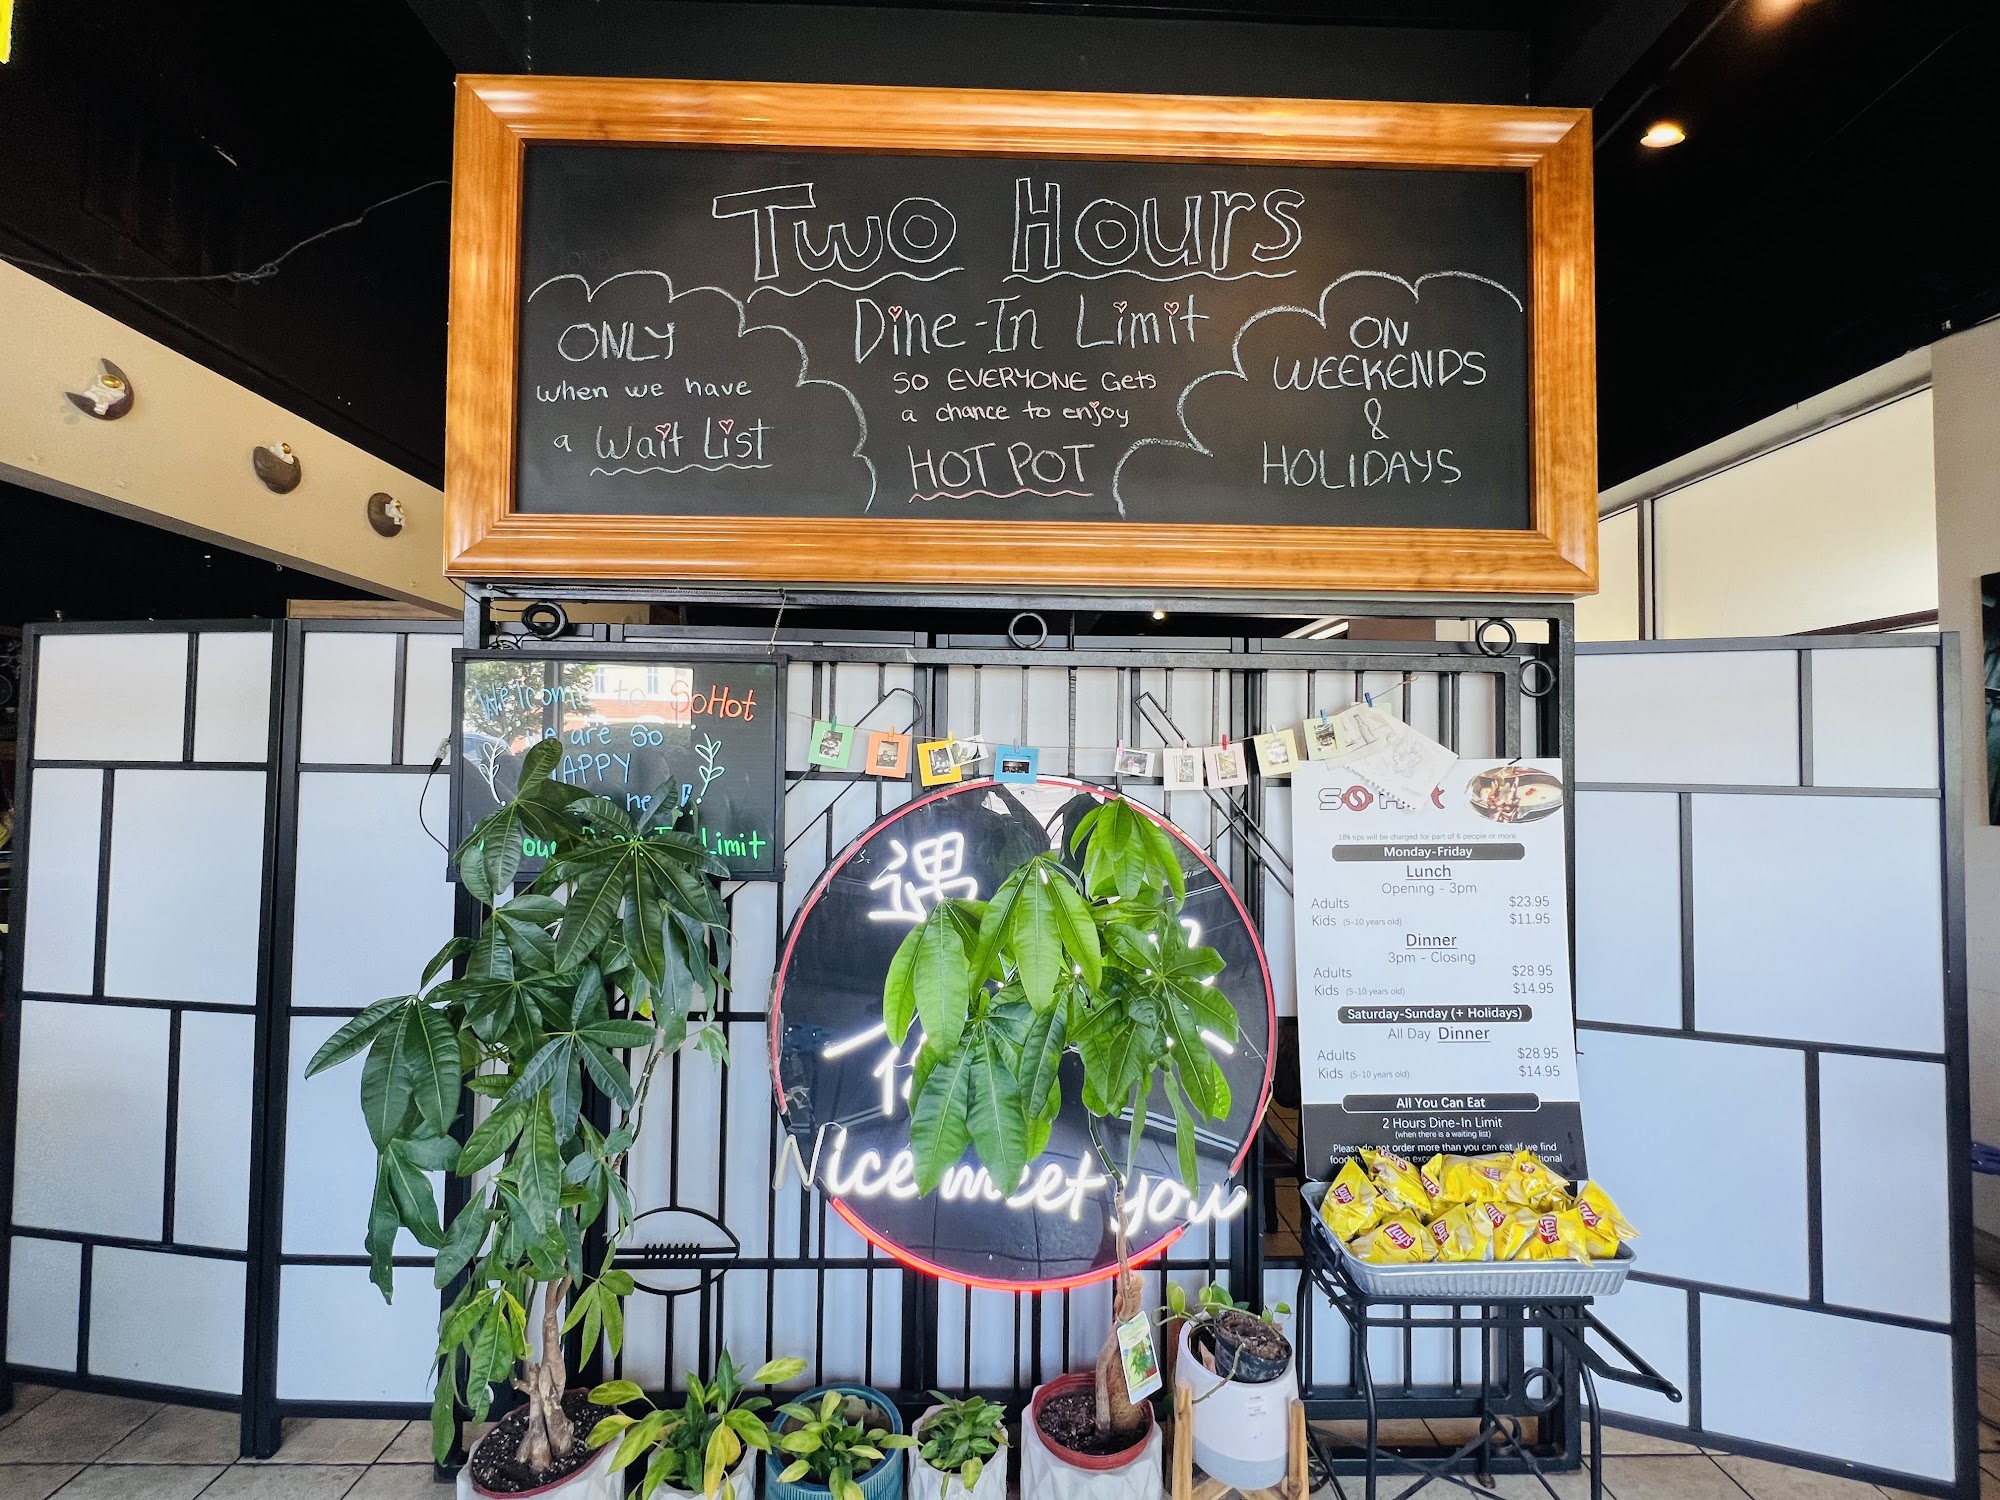 Two Hours
Dine-In Limit
so EVERYONE Gets
a chance to enjoy
HOT POT
ONLY
when we have
a Wait List
ON
WEEKENDS
&
HOLIDAYS
Welcome to SoHot
we are so
HAPPY
Limit
遇
Nice meet you
18% tips will be charged for part of 6 people or more.
Monday-Friday
Lunch
Opening - 3pm
Adults $23.95
Kids (5-10 years old) $11.95
Dinner
3pm - Closing
Adults $28.95
Kids (5-10 years old) $14.95
Saturday-Sunday (+ Holidays)
All Day Dinner
Adults $28.95
Kids (5-10 years old) $14.95
All You Can Eat
2 Hours Dine-In Limit
(when there is a waiting list)
Please do not order more than you can eat. If we find
Lay's
Lay's
Lay's
Lay's